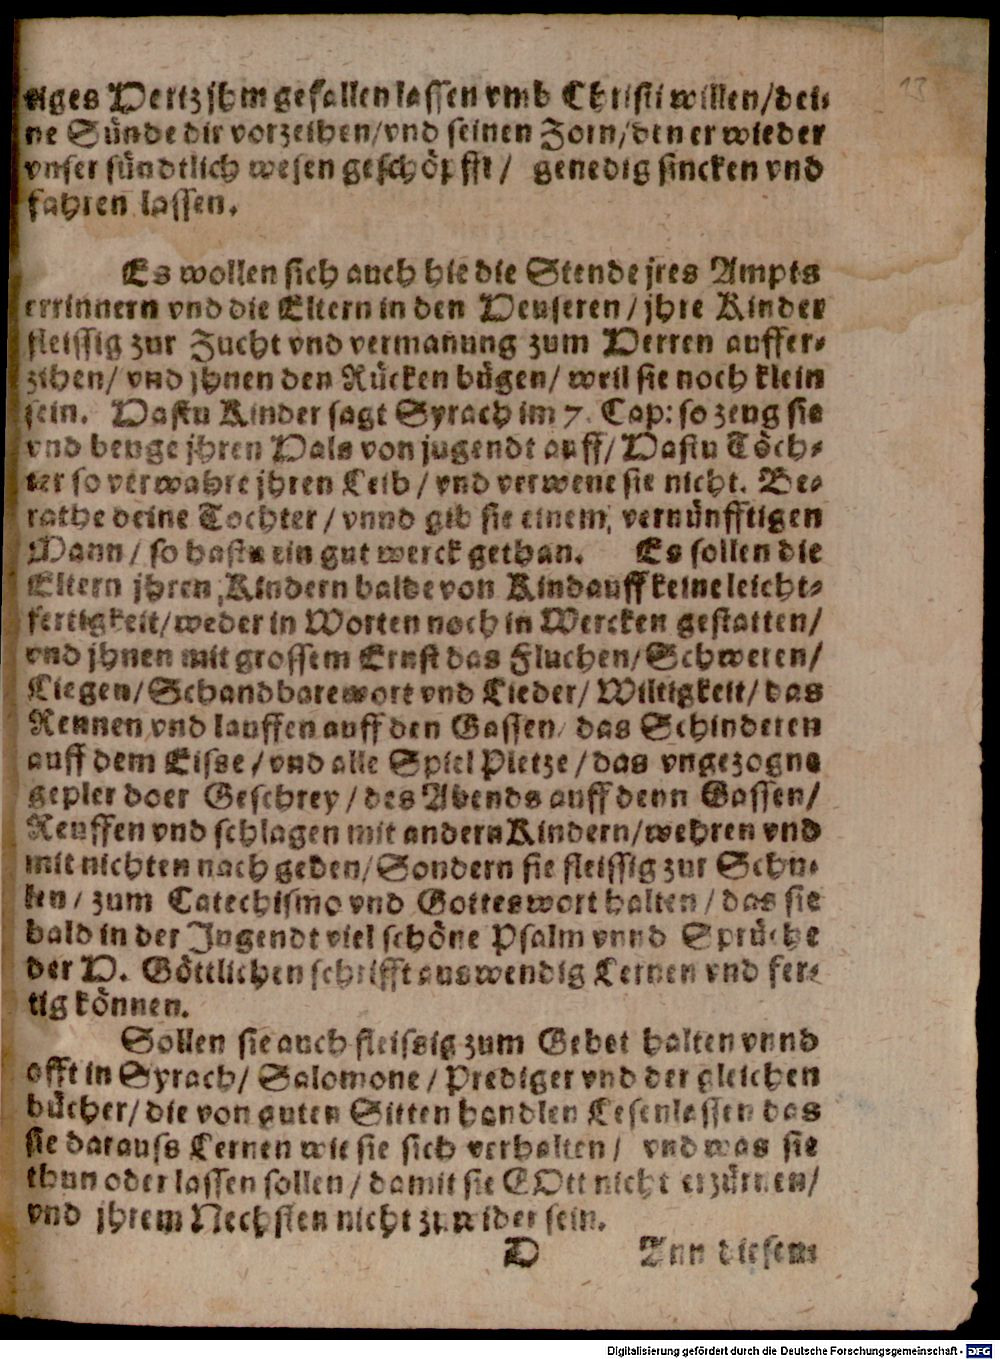 tiges Hertz jhm gefallen lassen vmb Christi willen/dei-
ne Sünde dir vorzeihen/vnd seinen Zorn/den er wieder
vnser sündtlich wesen geschöpfft/ genedig sincken vnd
fahren lassen.
Es wollen sich auch hie die Stende jres Ampts
errinnern vnd die Eltern in den Heuseren/jhre Kinder
fleissig zur Zucht vnd vermanung zum Herren auffer-
zihen/ vnd jhnen den Rücken bügen/ weil sie noch klein
sein. Hastu Kinder sagt Syrach im 7. Cap: so zeug sie
vnd beuge jhren Hals von jugendt auff/Hastu Töch-
ter so verwahre jhren Leib/ vnd verwene sie nicht. Be-
rathe deine Tochter/ vnnd gib sie einem vernünfftigen
Mann/ so hastu ein gut werck gethan. Es sollen die
Eltern jhren Kindern balde von Kindauff keine leicht-
fertigkeit/weder in Worten noch in Wercken gestatten/
vnd jhnen mit grossem Ernst das Fluchen/Schweren/
Liegen/Schandbare wort vnd Lieder/ Wiltigkeit/ das
Rennen vnd lauffen auff den Gassen/ das Schinderen
auff dem Eisse/vnd alle Spiel Pletze/das vngezogne
gepler doer Geschrey/des Abends auff denn Gassen/
Reuffen vnd schlagen mit andern Kindern/wehren vnd
mit nichten nach geden/Sondern sie fleissig zur Schu-
len/ zum Catechismo vnd Gottes wort halten/das sie
bald in der Jugendt viel schöne Psalm vnnd Sprüche
der H. Göttlichen schrifft auswendig Lernen vnd fer-
tig können.
Sollen sie auch fleissig zum Gebet halten vnnd
offt in Syrach/ Salomone/Prediger vnd der gleichen
bücher/die von guten Sitten handlen Lesen lassen das
sie darauss Lernen wie sie sich verhalten/ vnd was sie
thun oder lassen sollen/damit sie GOtt nicht erzürnen/
vnd jhrem Nechsten nicht zuwider sein.
D Inn diesem
13
Digitalisierung gefördert durch die Deutsche Forschungsgemeinschaft - DFG